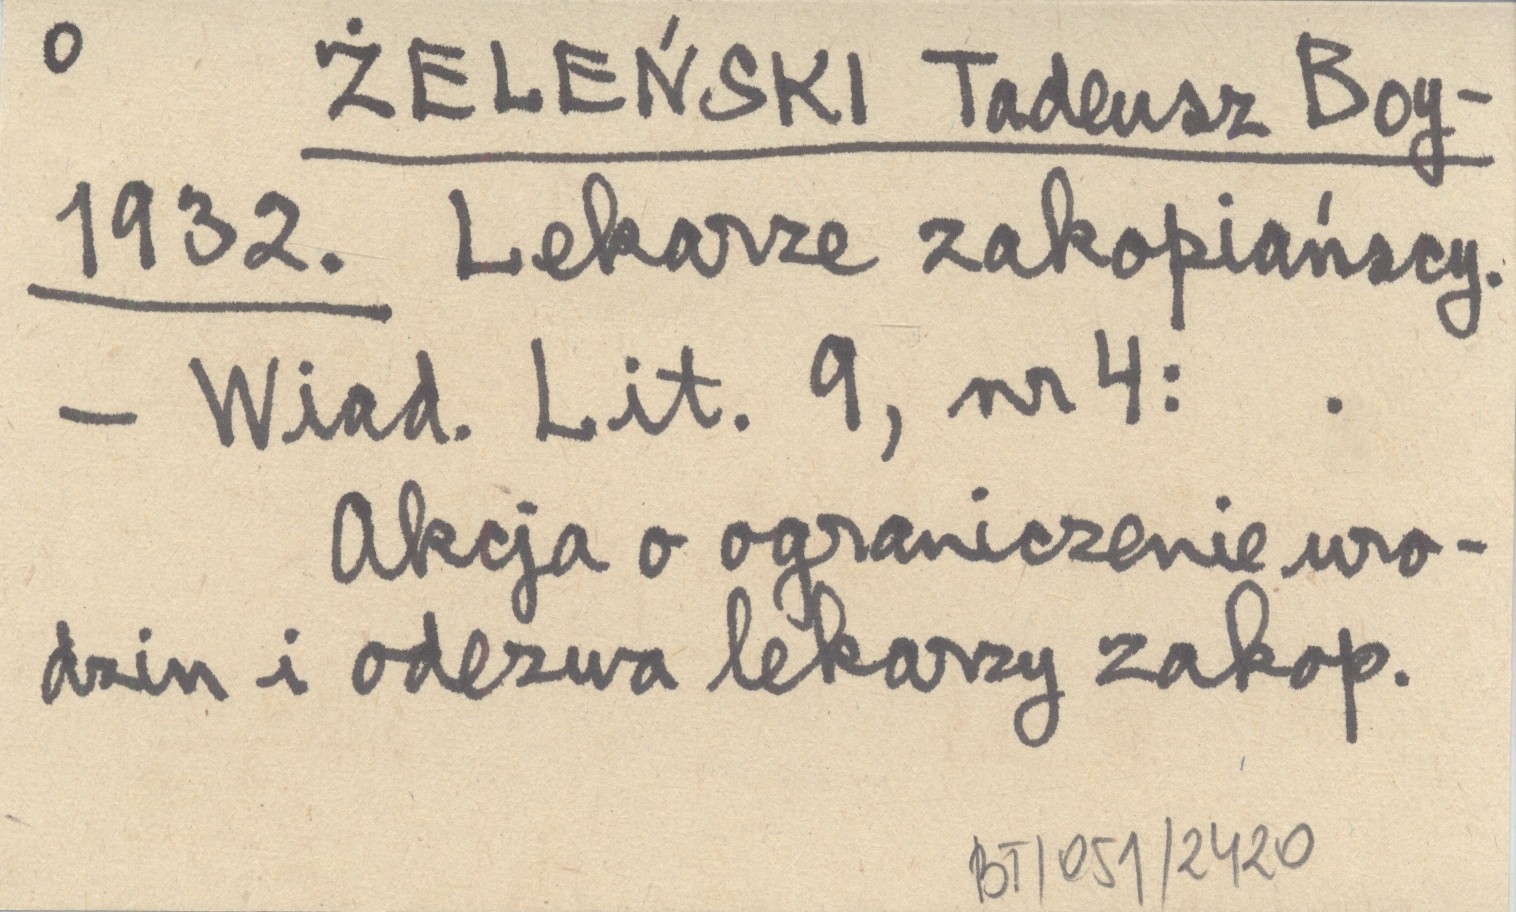 o ŻELEŃSKI Tadeusz Boy-
1932. Lekarze zakopiańscy.
— Wiad. Lit. 9, nr 4: .
Akcja o ograniczenie uro-
dzin i odezwa lekarzy zakop.
BT/051/2420